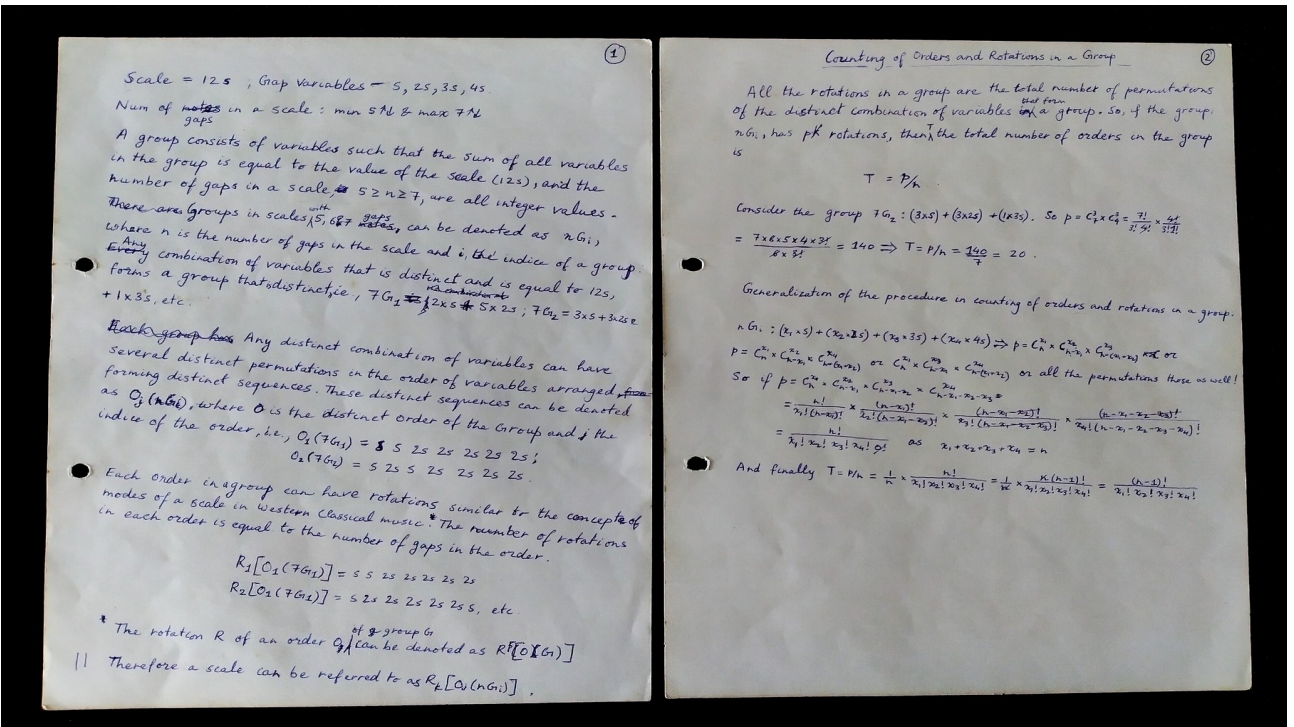 ①
Scale = 12s , Gap Variables - s, 2s, 3s, 4s.
Num of notes in a scale : min 5N & max 7N
gaps
A group consists of variables such that the sum of all variables
in the group is equal to the value of the scale (12s), and the
number of gaps in a scale, 5 ≥ n ≥ 7, are all integer values.
There are Groups in scales with 5, 6 & 7 gaps notes, can be denoted as nGi,
where n is the number of gaps in the scale and i, the indice of a group.
Every Any combination of variables that is distinct and is equal to 12s,
forms a group that's distinct, ie, 7G1 = 2xs + 5x2s ; 7G2 = 3xs + 3x2s
+ 1x3s, etc.
Each group has Any distinct combination of variables can have
several distinct permutations in the order of variables arranged, from
forming distinct sequences. These distinct sequences can be denoted
as Oj (nGi), where O is the distinct order of the Group and j the
indice of the order, i.e., O1(7G1) = s s 2s 2s 2s 2s 2s ;
O2(7G1) = s 2s s 2s 2s 2s 2s.
Each order in a group can have rotations similar to the concept of
modes of a scale in Western Classical music.* The number of rotations
in each order is equal to the number of gaps in the order.
R1[O1(7G1)] = s s 2s 2s 2s 2s 2s
R2[O1(7G1)] = s 2s 2s 2s 2s 2s s, etc.
* The rotation R of an order Oj of a group G can be denoted as R[O(G)]
|| Therefore a scale can be referred to as Rk[Oj(nGi)].
②
Counting of Orders and Rotations in a Group
All the rotations in a group are the total number of permutations
of the distinct combination of variables that form a group. So, if the group,
nGi, has p rotations, then T the total number of orders in the group
is
T = P/n
Consider the group 7G2 : (3xs) + (3x2s) + (1x3s). So p = C₇³ x C₄³ = 7!/3!4! x 4!/3!1!
= 7x6x5x4x3!/6x3! = 140 => T = P/n = 140/7 = 20.
Generalization of the procedure in counting of orders and rotations in a group.
nGi : (x1 x s) + (x2 x 2s) + (x3 x 3s) + (x4 x 4s) => p = Cn^x1 x Cn-x1^x2 x Cn-(x1-x2)^x3 or
p = Cn^x1 x Cn-x1^x2 x Cn-(x1-x2)^x4 or Cn^x1 x Cn-x1^x3 x Cn-(x1-x2)^x4 or all the permutations these as well!
So if p = Cn^x1 x Cn-x1^x2 x Cn-x1-x2^x3 x Cn-x1-x2-x3^x4
= n!/x1!(n-x1)! x (n-x1)!/x2!(n-x1-x2)! x (n-x1-x2)!/x3!(n-x1-x2-x3)! x (n-x1-x2-x3)!/x4!(n-x1-x2-x3-x4)!
= n!/x1! x2! x3! x4! 0! as x1+x2+x3+x4 = n
And finally T = P/n = 1/n x n!/x1! x2! x3! x4! = 1/n x n(n-1)!/x1! x2! x3! x4! = (n-1)!/x1! x2! x3! x4!